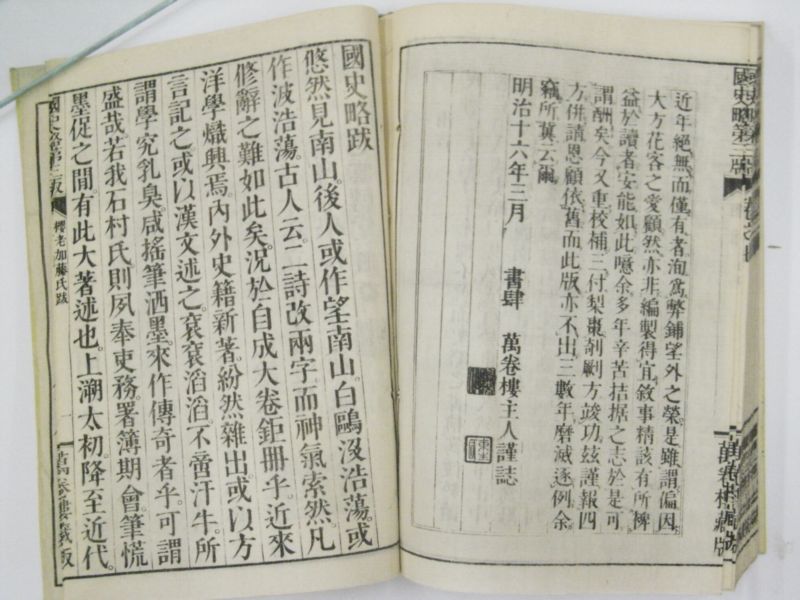 近年絕無而僅有者洵爲弊鋪望外之榮是雖謂偏因
大方花客之愛顧然亦非編製得宜敘事精該有所裨
益於讀者安能如此噫余多年辛苦拮据之志於是可
謂酬矣今又重校補三付梨棗剞劂方竣功玆謹報四
方併請恩顧依舊而此版亦不出三數年磨滅逐例余
竊所冀云爾
明治十六年三月
書肆 萬卷樓主人謹誌
國史略第三版
萬卷樓藏版
國史略跋
悠然見南山。後人或作望南山。白鷗沒浩蕩。或
作波浩蕩。古人云。二詩改兩字而神氣索然。凡
修辭之難如此矣。況於自成大卷鉅冊乎。近來
洋學熾興焉。內外史籍新著。紛然雜出。或以方
言記之。或以漢文述之。袞袞滔滔。不啻汗牛。所
謂學究乳臭。咸搖筆洒墨。來作傳奇者乎。可謂
盛哉。若我石村氏。則夙奉吏務。署簿期會。筆慌
墨促之間。有此大著述也。上溯太初。降至近代。
國史略第三版
櫻老加藤氏跋
一
萬卷樓藏版